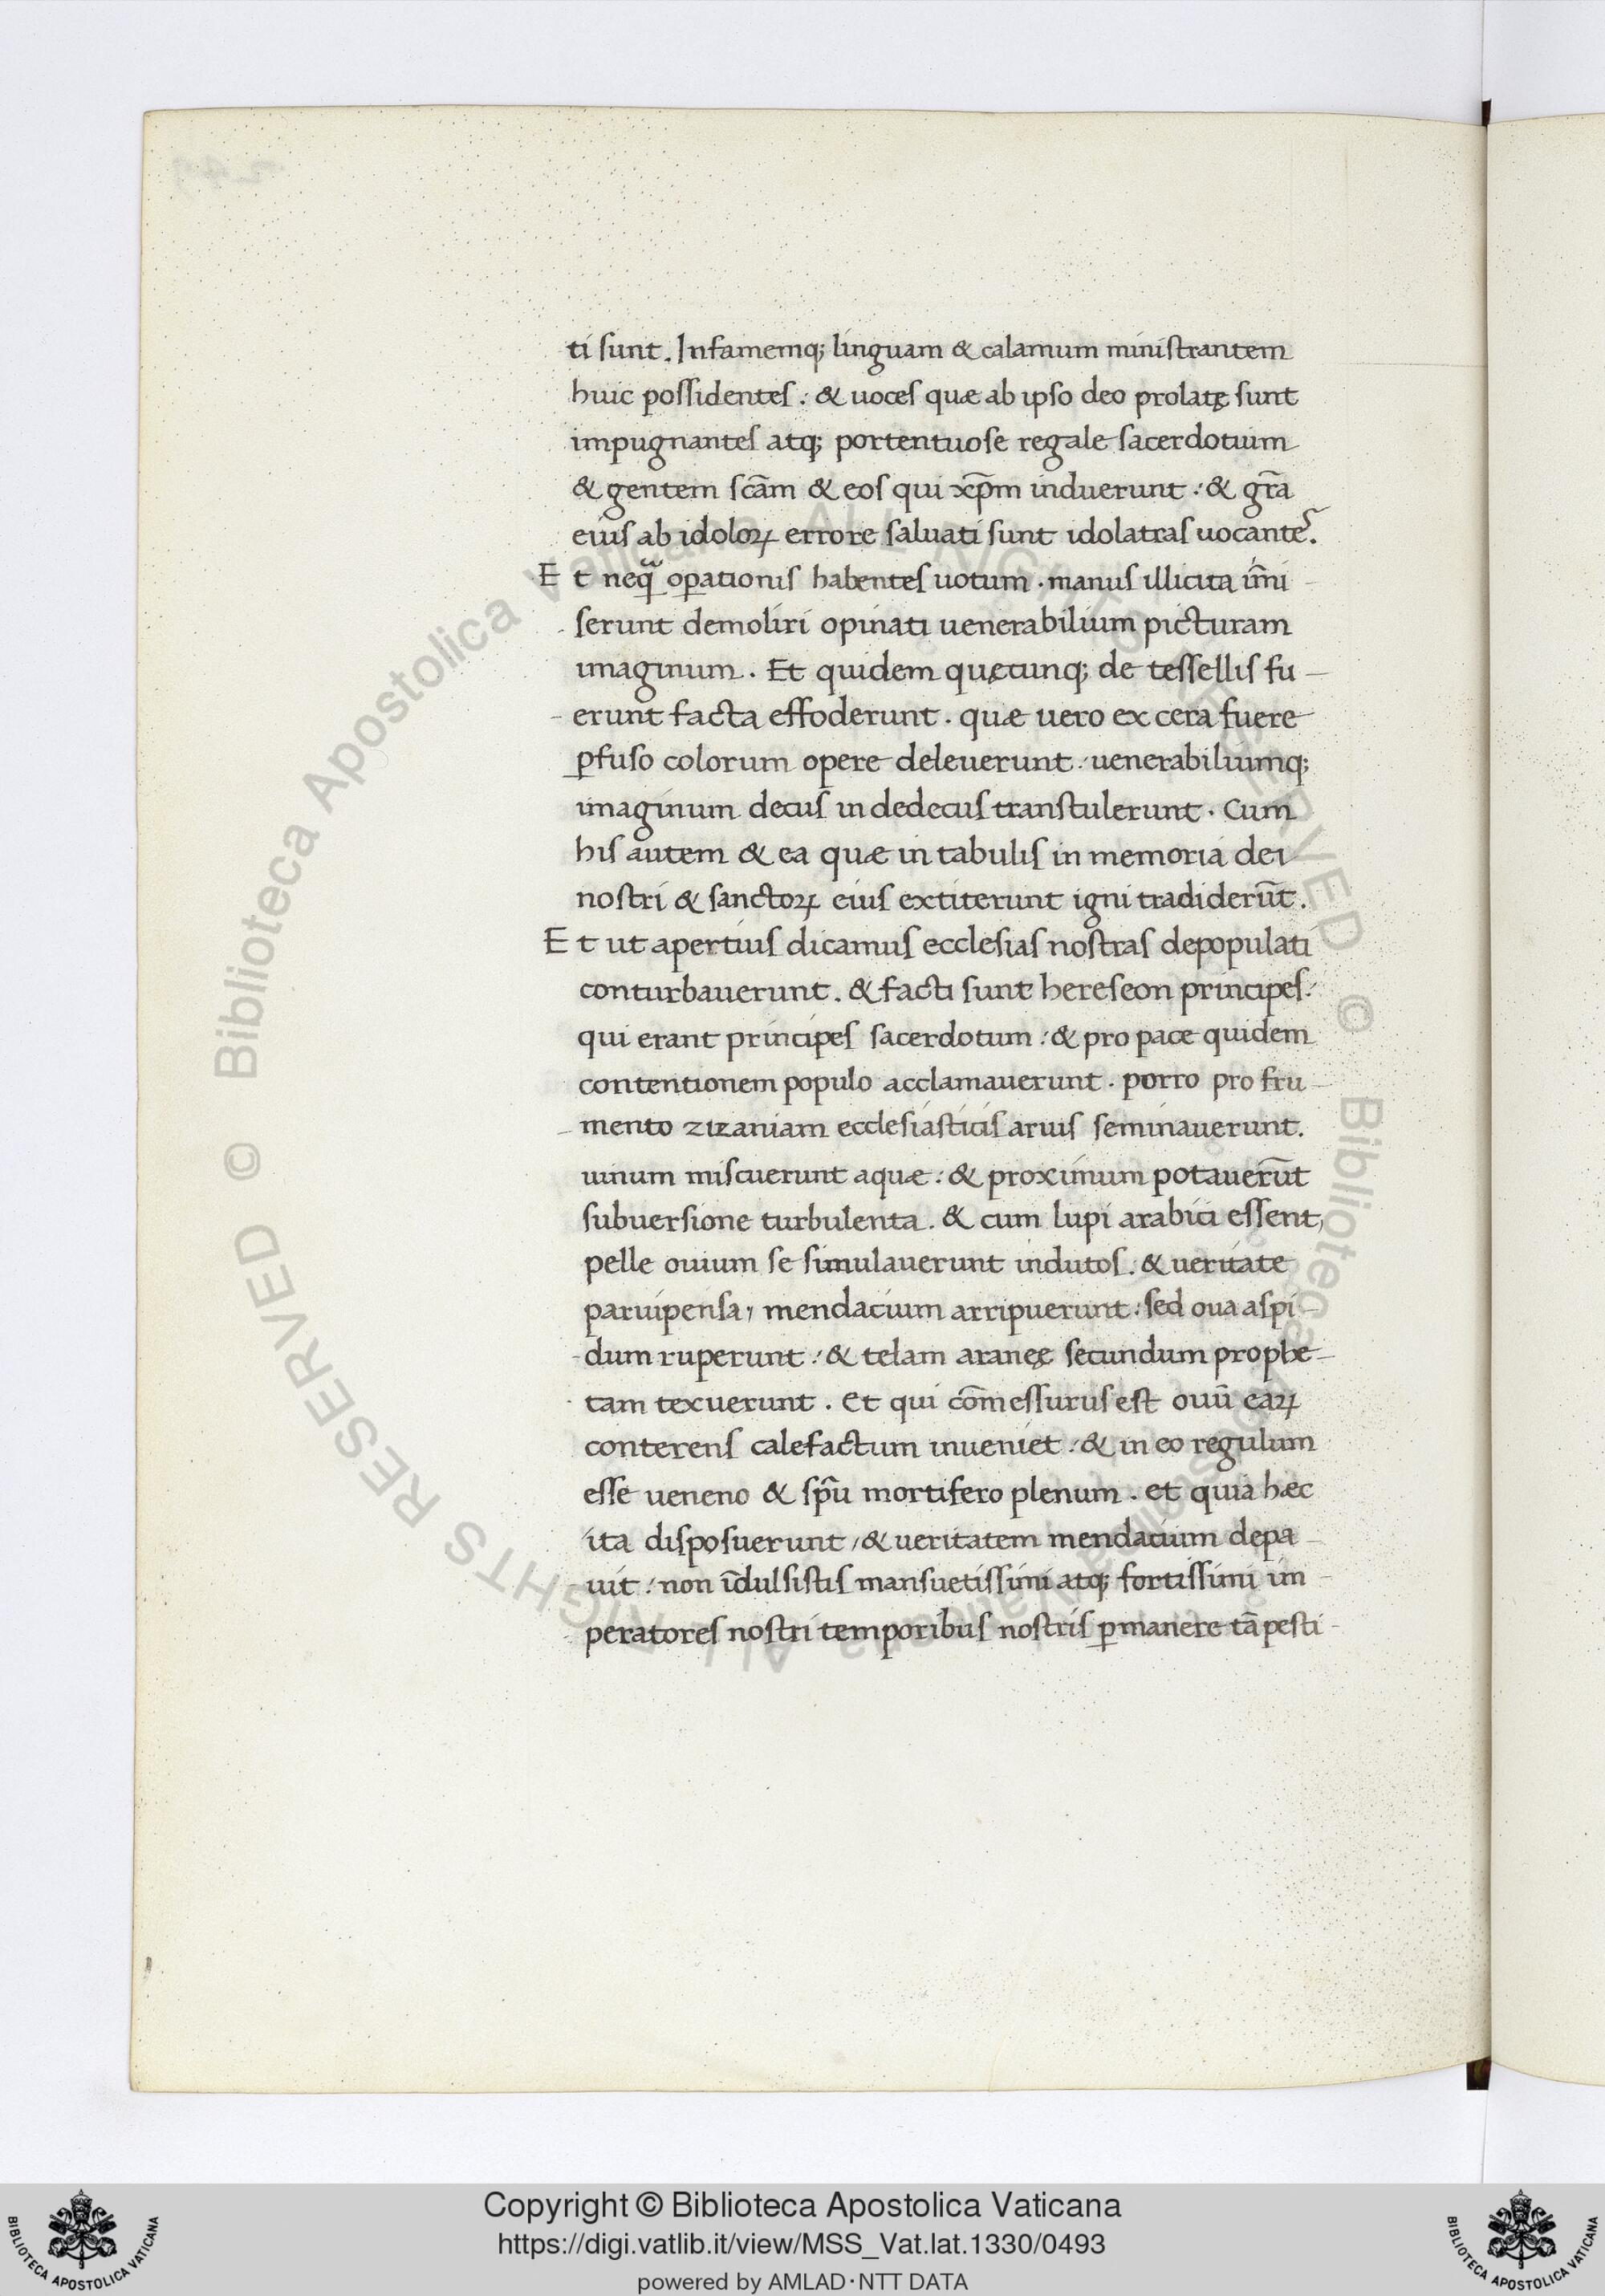 ti sunt. Infamemq; linguam & calamum ministrantem
huic possidentes: & uoces quæ ab ipso deo prolatę sunt
impugnantes atq; portentuose regale sacerdotium
& gentem scãm & eos qui xp̃m induerunt: & gr̃a
eius ab idoloꝝ errore saluati sunt idolatras uocantes.
Et neꝗᷓ oꝑationis habentes uotum. manus illicita im̃i
serunt demoliri opinati uenerabilium picturam
imaginum. Et quidem quęcunq; de tessellis fu-
erunt facta effoderunt. quæ uero ex cera fuere
ꝑfuso colorum opere deleuerunt: uenerabiliumq;
imaginum decus in dedecus transtulerunt. Cum
his autem & ea quæ in tabulis in memoria dei
nostri & sanctoꝝ eius extiterunt igni tradiderũt.
Et ut apertius dicamus ecclesias nostras depopulati
conturbauerunt. & facti sunt hereseon principes:
qui erant principes sacerdotum: & pro pace quidem
contentionem populo acclamauerunt. porro pro fru-
mento zizaniam ecclesiasticis aruis seminauerunt.
uinum miscuerunt aquæ: & proximum potauerũt
subuersione turbulenta. & cum lupi arabici essent,
pelle ouium se simulauerunt indutos. & ueritate
paruipensa, mendacium arripuerunt: sed oua aspi-
dum ruperunt: & telam aranęę secundum prophe-
tam texuerunt. Et qui com̃essurus est ouũ eaꝝ
conterens calefactum inueniet: & in eo regulum
esse ueneno & sp̃u mortifero plenum. et quia hæc
ita disposuerunt, & ueritatem mendacium depa-
uit: non ĩdulsistis mansuetissimi atq; fortissimi im-
peratores nostri temporibus nostris ꝑmanere tã pesti-
Copyright © Biblioteca Apostolica Vaticana
https://digi.vatlib.it/view/MSS_Vat.lat.1330/0493
powered by AMLAD·NTT DATA